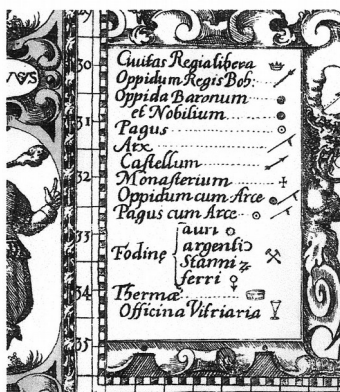 30
31
32
33
34
35
Civitas Regia libera
Oppidum Regis Boh:
Oppida Baronum
et Nobilium
Pagus
Arx
Castellum
Monasterium
Oppidum cum Arce
Pagus cum Arce
Fodinę
auri
argenti
Stanni
ferri
Thermæ
Officina Vitriaria